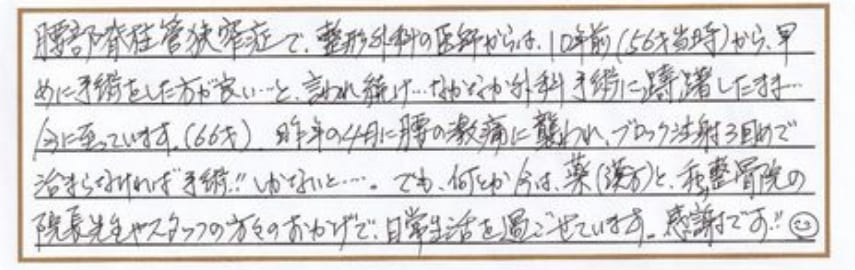 腰部脊柱管狭窄症で、整形外科の医師からは、10年前(56才当時)から、早
めに手術をした方が良い…と、言われ続け…なかなか外科手術に躊躇したまま…
今に至っています。(66才) 昨年の4月に腰の激痛に襲われ、ブロック注射3回めで
治まらなければ手術!! しかないと…。でも、何とか今は、薬(漢方)と、整骨院の
院長先生やスタッフの方々のおかげで、日常生活を過ごせています。感謝です!!